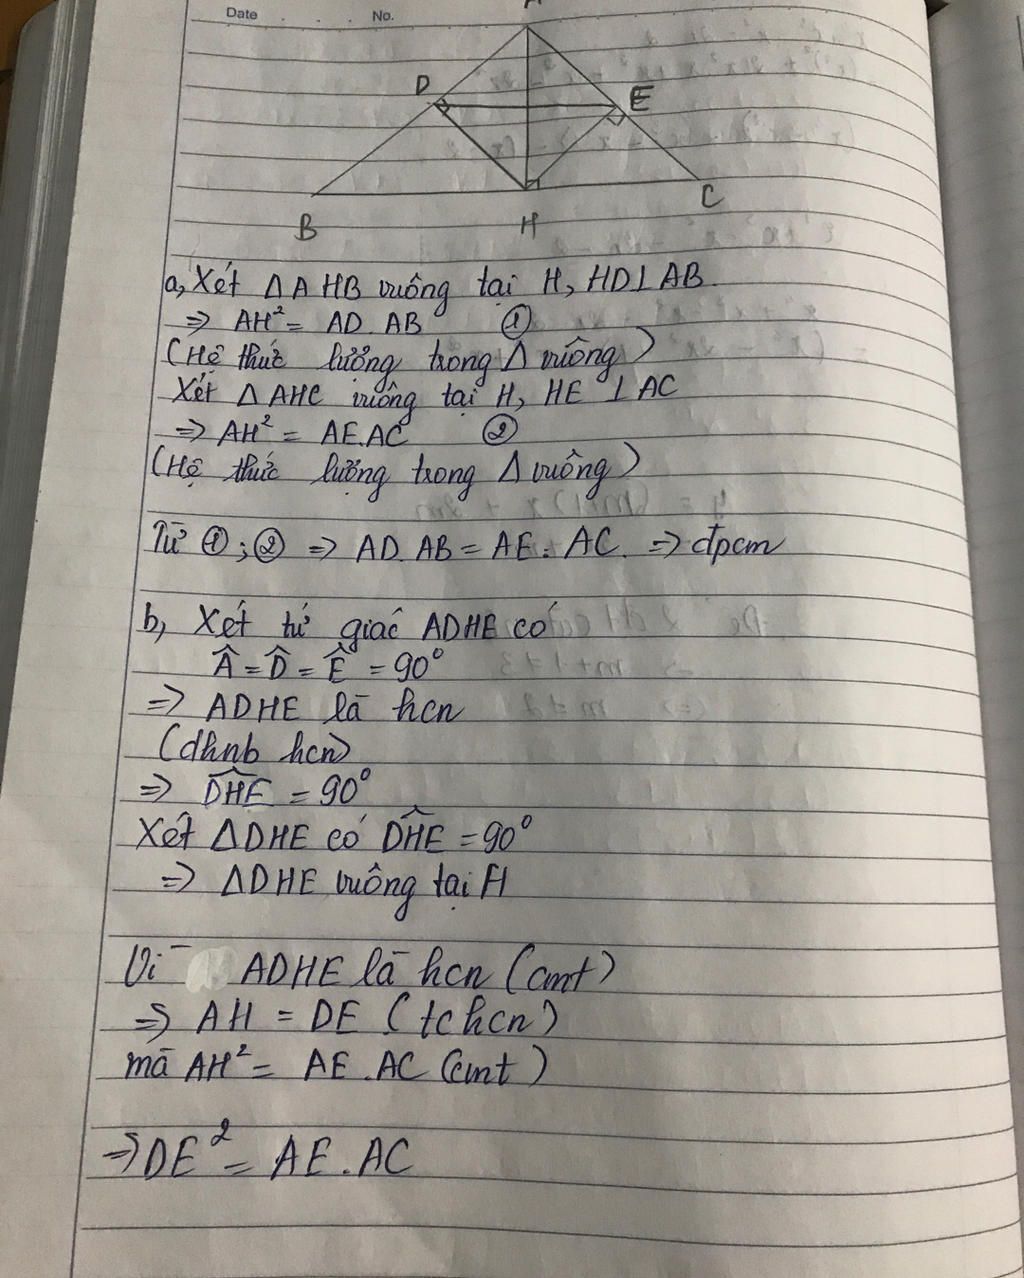 Date . . . No.
A
D
E
B
H
C
a, Xét ΔAHB vuông tại H, HD⊥AB
=> AH² = AD.AB ①
(Hệ thức lượng trong Δ vuông)
Xét ΔAHC vuông tại H, HE ⊥ AC
=> AH² = AE.AC ②
(Hệ thức lượng trong Δ vuông)
Từ ①;② => AD.AB = AE.AC => đpcm
b, Xét tứ giác ADHE có
Â = D̂ = Ê = 90°
=> ADHE là hcn
(dhnb hcn)
=> DHE = 90°
Xét ΔDHE có DHE = 90°
=> ΔDHE vuông tại H
Vì ADHE là hcn (cmt)
=> AH = DE (tc hcn)
mà AH² = AE.AC (cmt)
=> DE² = AE.AC